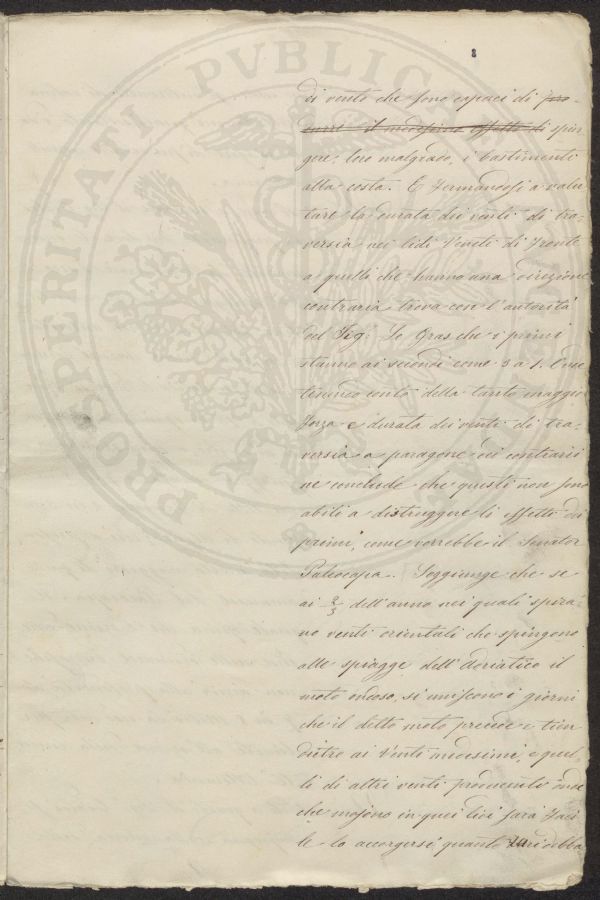 8
di vento che sono capaci di pro-
durre il medesimo effetto di spin
gere, loro malgrado, i bastimenti
alla costa. E fermandosi a valu
tare la durata dei venti di tra-
versia nei lidi Veneti di fronte
a quelli che hanno una direzione
contraria trova con l'autorità
del Sig. Le Gras che i primi
stanno ai secondi come 3 a 1. Onde
tenendo conto della tanto maggior
forza e durata dei venti di tra-
versia a paragone dei contrarii
ne conclude che questi non sono
abili a distruggere li effetti dei
primi, come vorrebbe il Senator
Paleocapa. Soggiunge che se
ai 2/3 dell'anno nei quali spira
no venti orientali che spingono
alle spiagge dell'Adriatico il
moto ondoso, si uniscono i giorni
che il detto moto precede e tien
dietro ai Venti medesimi, e quel-
li di altri venti producenti onde
che in quei lidi sarà faci
le lo accorgersi quanto debba
PROSPERITATI PVBLICAE